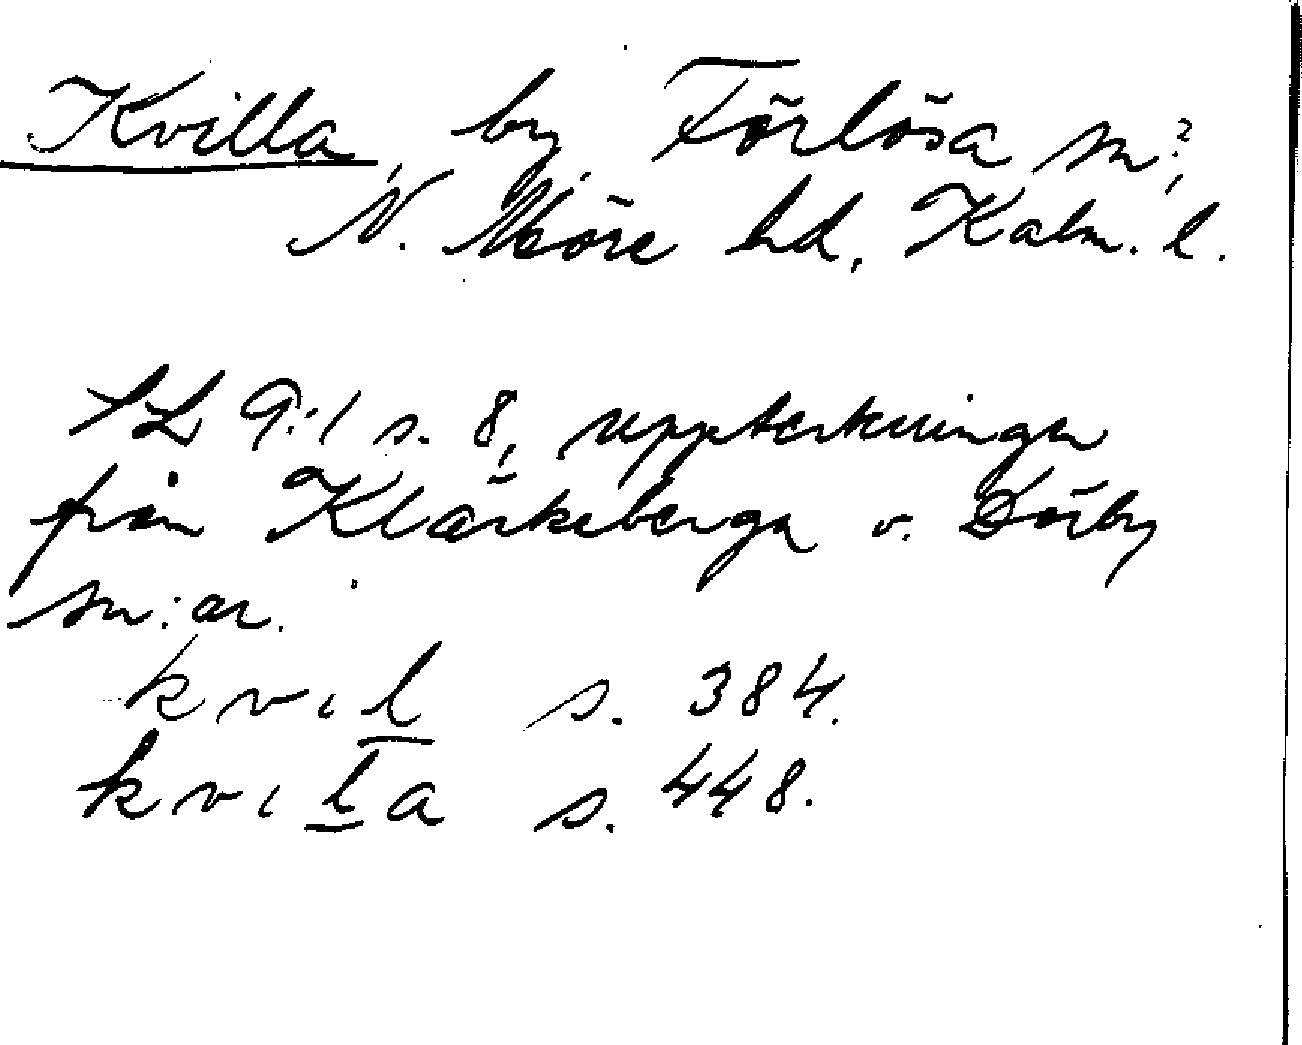 Kvilla, by, Förlösa sn?,
N. Möre hd, Kalm. l.
SL 9:1 s. 8, uppteckningar
från Kläckeberga o. Dörby
sn:ar.
kvıl s. 384.
kvıla s. 448.